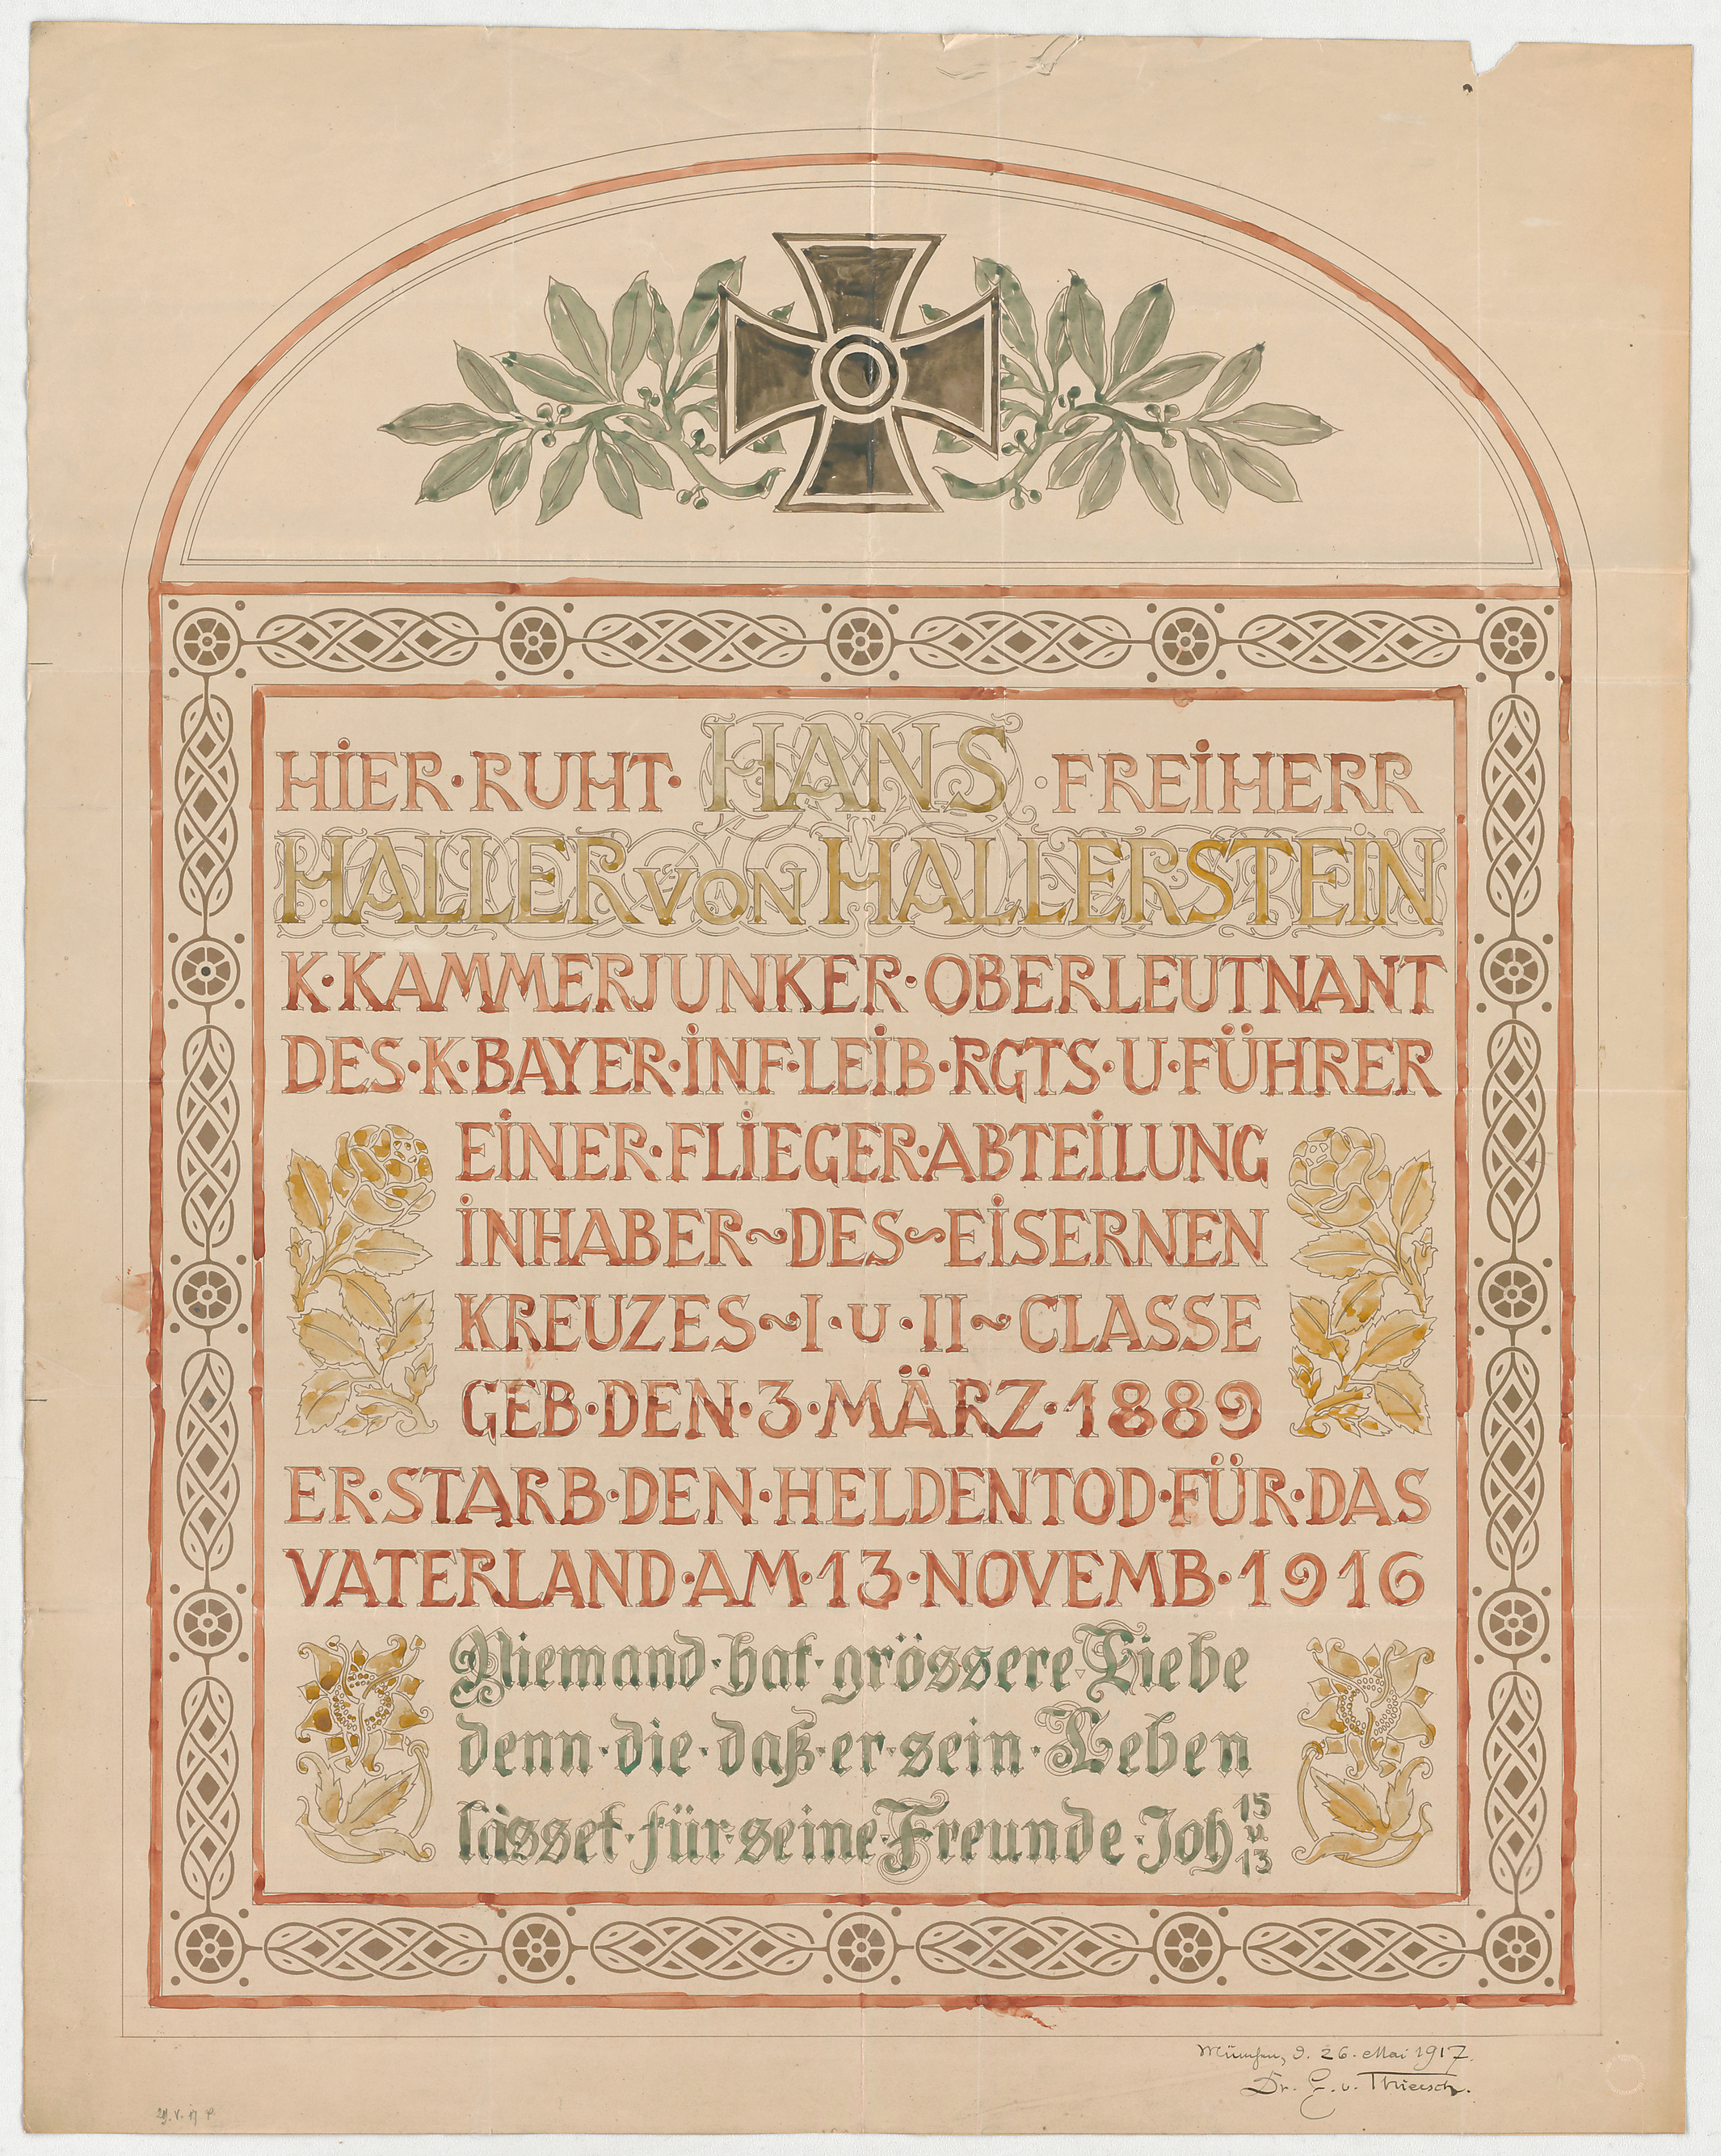 HIER·RUHT·HANS·FREIHERR
HALLER VON HALLERSTEIN
K·KAMMERJUNKER·OBERLEUTNANT
DES·K·BAYER·INF·LEIB·RGTS·U·FÜHRER
EINER·FLIEGER·ABTEILUNG
INHABER~DES~EISERNEN
KREUZES~I·u·II~CLASSE
GEB·DEN·3·MÄRZ·1889
ER·STARB·DEN·HELDENTOD·FÜR·DAS
VATERLAND·AM·13·NOVEMB·1916
Niemand·hat·grössere·Liebe
denn·die·daß·er·sein·Leben
lässet·für·seine·Freunde·Joh 15 v. 13
München, d. 26. Mai 1917.
Dr. F. v. Thiersch.